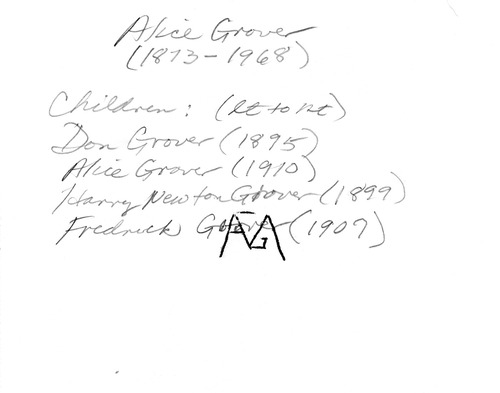 Alice Grover
(1873-1968)
Children: (lt to rt)
Don Grover (1895)
Alice Grover (1910)
Harry Newton Grover (1899)
Fredrick Grover (1907)